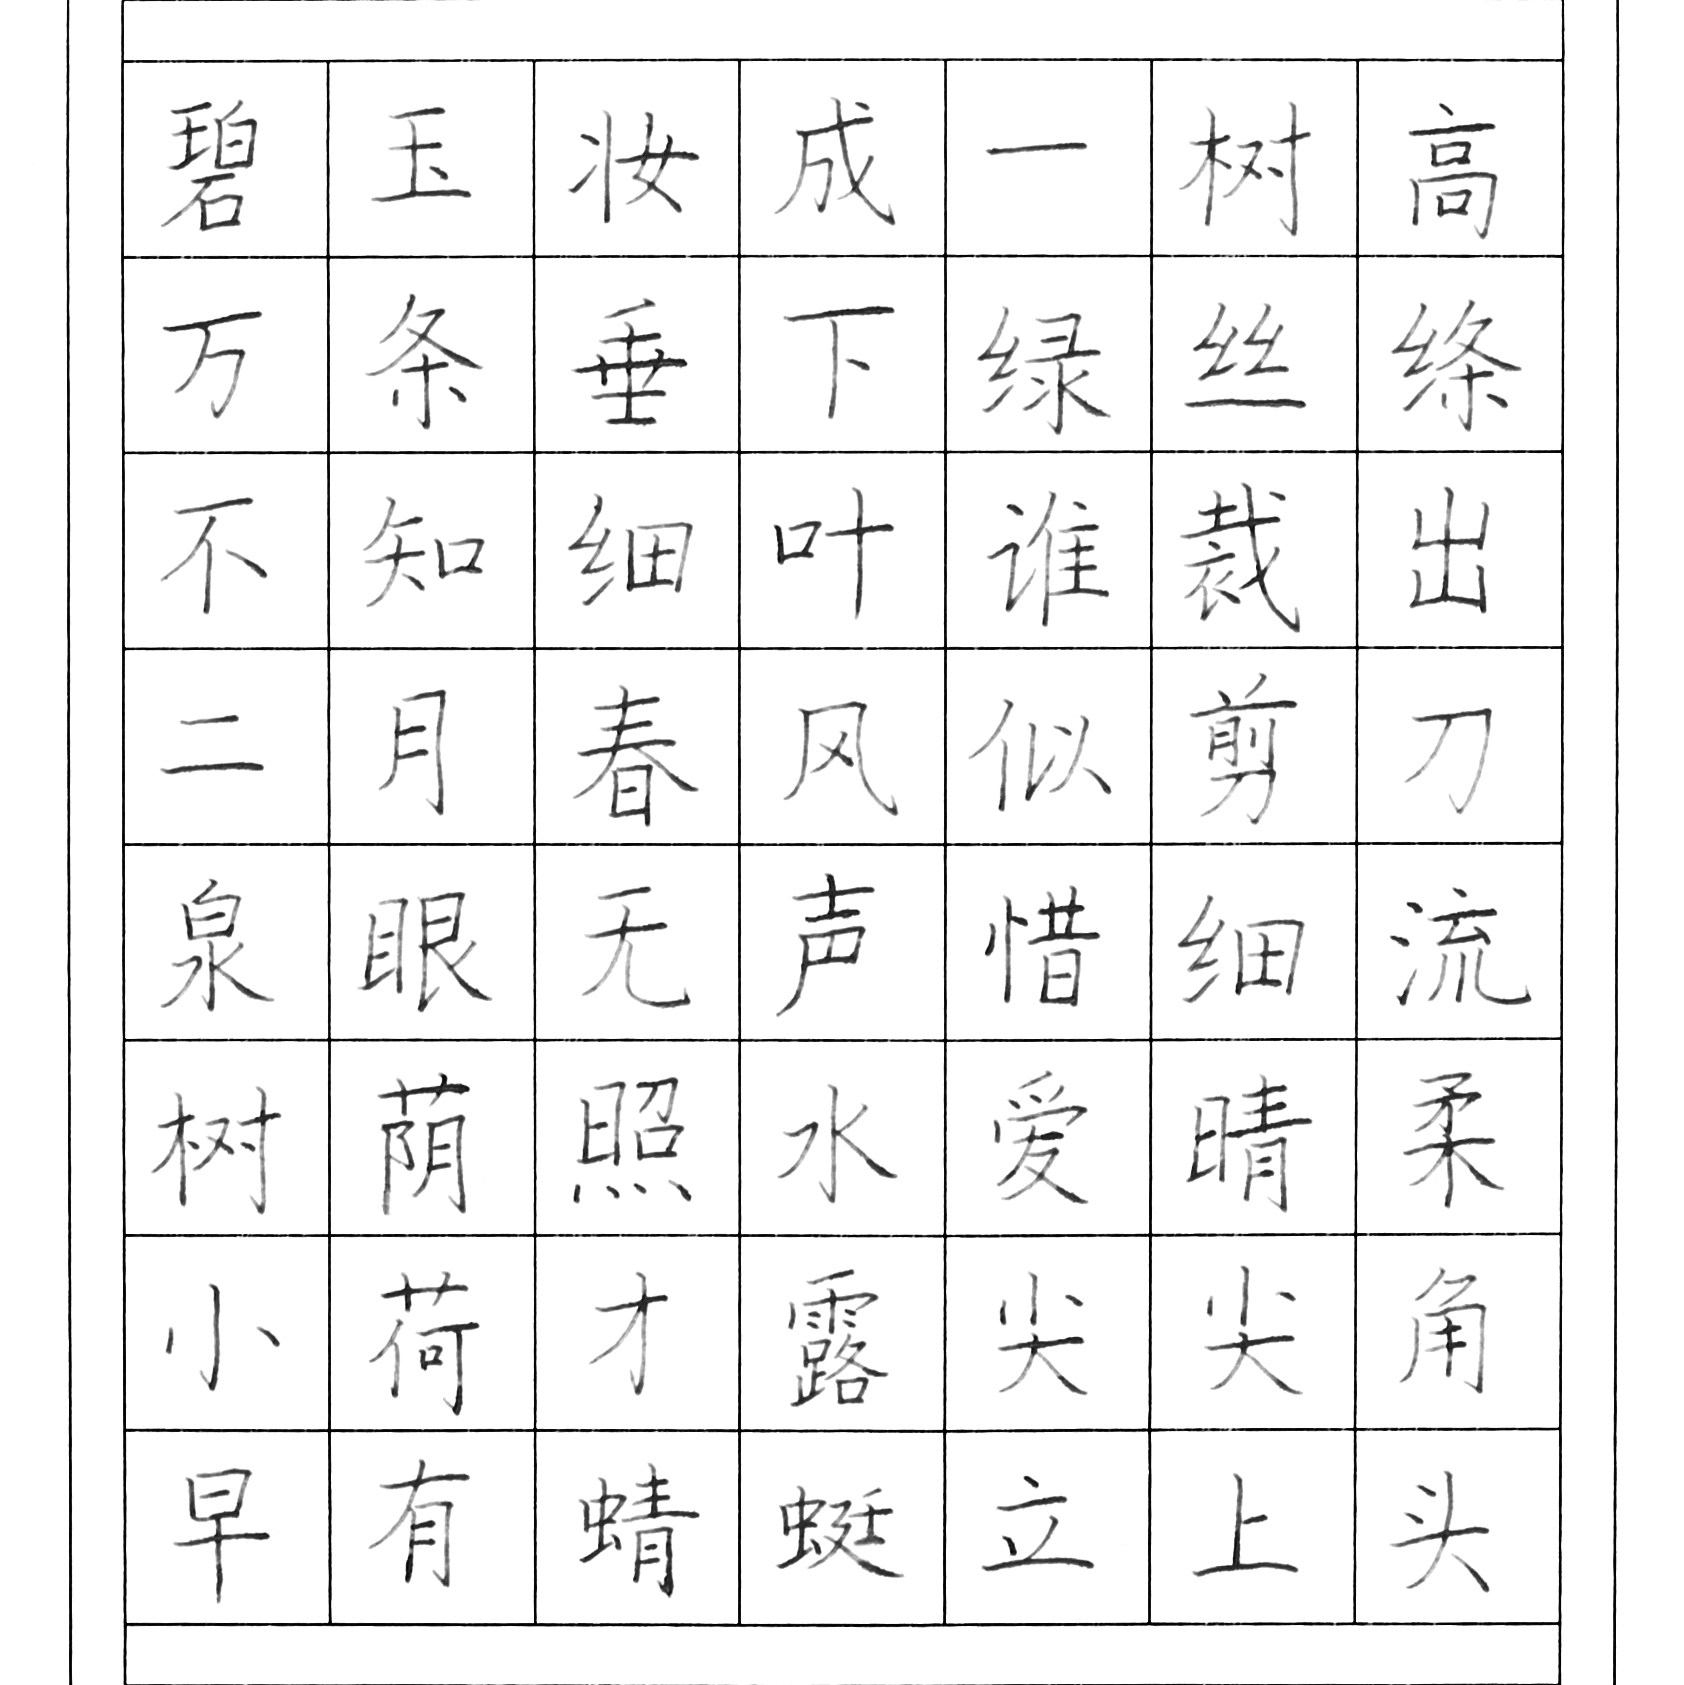 碧玉妆成一树高
万条垂下绿丝绦
不知细叶谁裁出
二月春风似剪刀
泉眼无声惜细流
树荫照水爱晴柔
小荷才露尖尖角
早有蜻蜓立上头